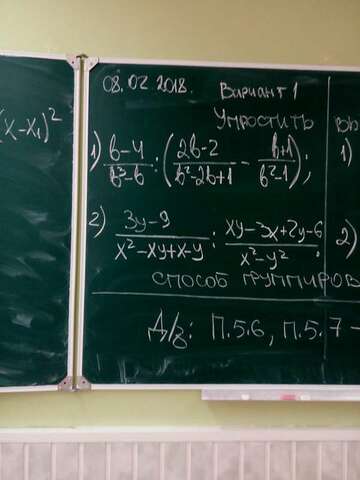 (x-x₁)²
08.02.2018. Вариант 1
Упростить
1) (b-4)/(b²-b) : ((2b-2)/(b²-2b+1) - (b+1)/(b²-1));
2) (3y-9)/(x²-xy+x-y) : (xy-3x+2y-6)/(x²-y²);
способ группиров
Д/з: П.5.6, П.5.7-
1)
2)